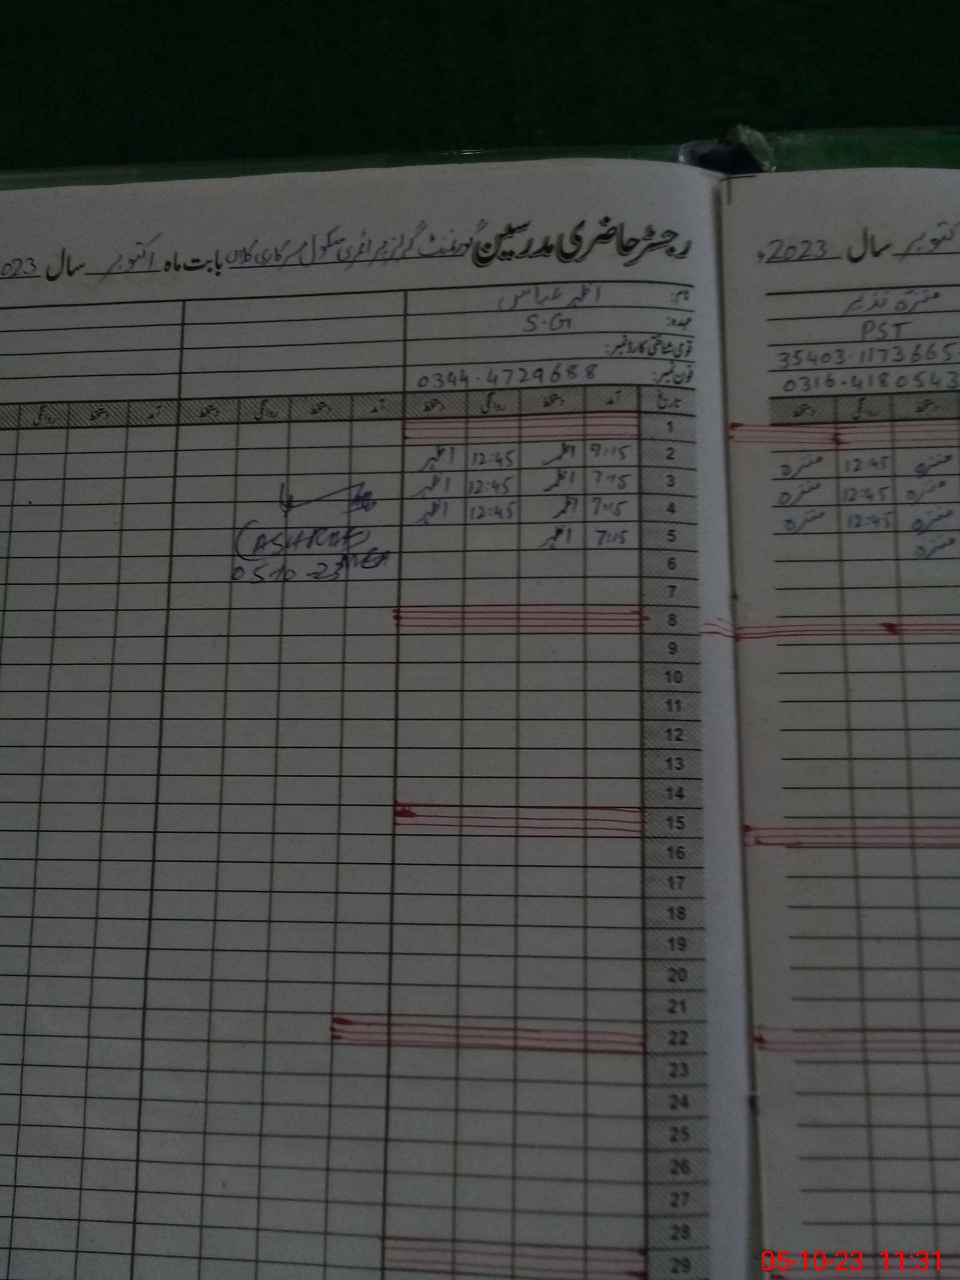 رجسٹر حاضری مدرسین گورنمنٹ گرلز پرائمری سکول سرکاری کلاں بابت ماہ اکتوبر سال 2023
نام: اظہر عباس
عہدہ: S.G
قومی شناختی کارڈ نمبر:
فون نمبر: 0344-4729688
تاریخ آمد دستخط روانگی دستخط آمد دستخط روانگی دستخط آمد دستخط روانگی
1
2 9:15 اظہر 12:45 اظہر
3 7:15 اظہر 12:45 اظہر
4 7:15 اظہر 12:45 اظہر
5 7:15 اظہر
6
7
8
9
10
11
12
13
14
15
16
17
18
19
20
21
22
23
24
25
26
27
28
29
(ASHRAF)
05-10-23
اکتوبر سال 2023ء
منزہ نذیر
PST
35403-1173665
0316-4180543
دستخط روانگی دستخط
منزہ 12:45 منزہ
منزہ 12:45 منزہ
منزہ 12:45 منزہ
منزہ
05-10-23 11:31